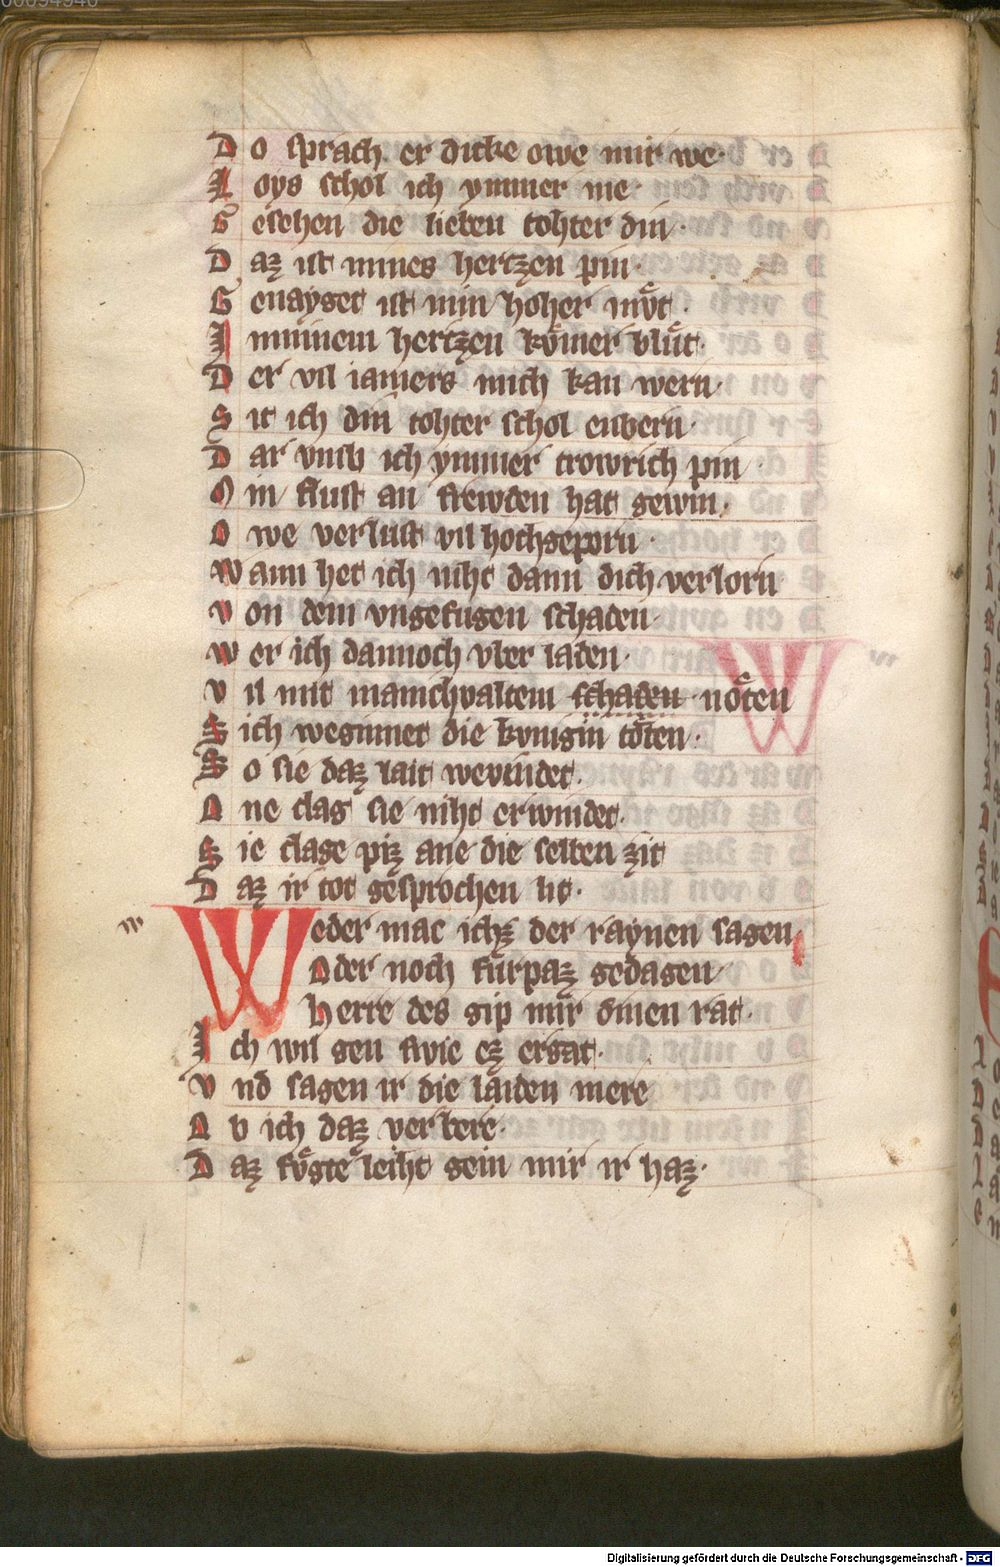 Do sprach er dicke owe mir we·
Loys schol ich ymmer me·
Gesehen die lieben tohter din·
Daz ist mines hertzen pin·
Genayset ist min hoher muͦt·
In minem hertzen kuͦmer bluͤt·
Der vil iamers mich kan wern·
Sit ich din tohter schol enbern·
Dar vmb ich ymmer trowrich pin·
Min flust an frewden hat gewin·
Owe verlust vil hochgeporn·
Wann het ich niht dann dich verlorn
Von dem vngefugen schaden·
Wer ich dannoch vber laden·
Vil mit manichvaltem schaden noͤten
Sich weginnet die kvnigin toͤten·
So sie daz lait wevindet·
Ane clag sie niht erwindet·
Sie clage piz ane die selben zit
Daz ir tot gesprochen lit·
w
Weder mac ichz der raynen sagen
Oder noch fuͤrpaz gedagen
Herre des gip mir dinen rat·
Ich wil gen swie ez ergat·
Vnd sagen ir die laiden mere
Ab ich daz verbere·
Daz fuͦgte leiht gein mir ir haz·
Digitalisierung gefördert durch die Deutsche Forschungsgemeinschaft - DFG